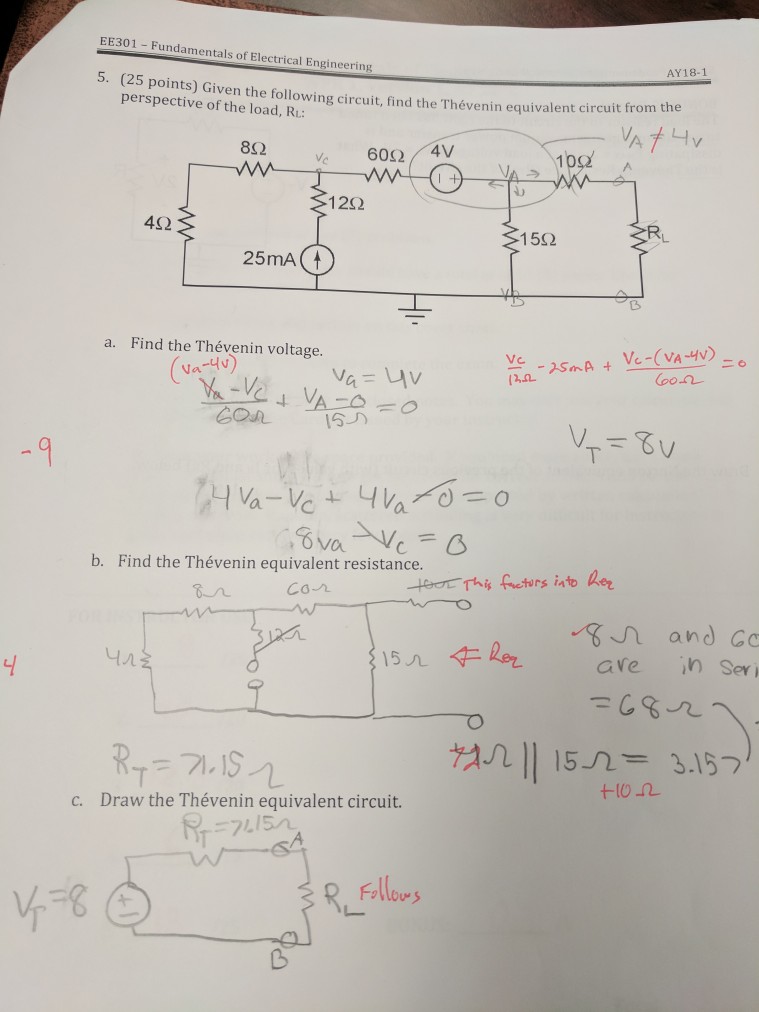 EE301 – Fundamentals of Electrical Engineering
AY18-1
5. (25 points) Given the following circuit, find the Thévenin equivalent circuit from the
perspective of the load, RL:
VA ≠ 4v
8Ω
Vc
60Ω
4V
VA
10Ω
A
12Ω
4Ω
15Ω
RL
25mA
VB
B
a. Find the Thévenin voltage.
(Va-4v)
Va = 4V
Vc/12Ω - 25mA + Vc-(VA-4V)/60Ω = 0
Va-Vc/60Ω + VA-0/15Ω = 0
VT = 8V
-9
4Va-Vc + 4Va-0 = 0
8va-Vc = 0
b. Find the Thévenin equivalent resistance.
This factors into Req
8Ω
60Ω
12Ω
4Ω
15Ω
⇐ Req
8Ω and 60
are in seri
= 68Ω
4
RT = 71.15Ω
72Ω || 15Ω = 3.15
+10Ω
c. Draw the Thévenin equivalent circuit.
RT=71.15Ω
A
VT=8
+
−
RL
Follows
B